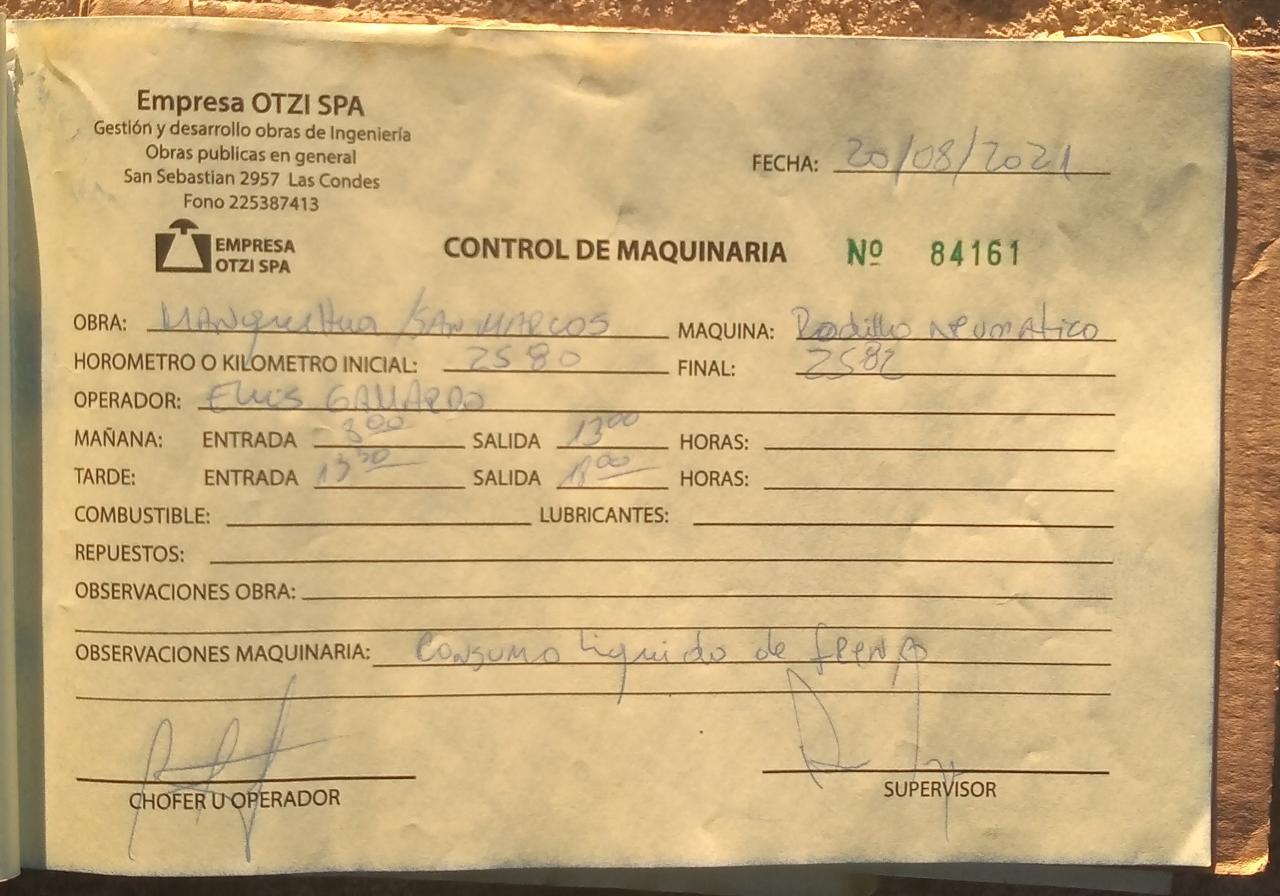 Empresa OTZI SPA
Gestión y desarrollo obras de Ingeniería
Obras publicas en general
San Sebastian 2957 Las Condes
Fono 225387413
FECHA: 20/08/2021
EMPRESA
OTZI SPA
CONTROL DE MAQUINARIA Nº 84161
OBRA: MANquehua /SAN MARCOS MAQUINA: Rodillo neumatico
HOROMETRO O KILOMETRO INICIAL: 2580 FINAL: 2582
OPERADOR: GALLARDO
MAÑANA: ENTRADA 8:00 SALIDA 13:00 HORAS:
TARDE: ENTRADA 13:30 SALIDA 18:00 HORAS:
COMBUSTIBLE: LUBRICANTES:
REPUESTOS:
OBSERVACIONES OBRA:
OBSERVACIONES MAQUINARIA: Consumo liquido de freno
CHOFER U OPERADOR
SUPERVISOR